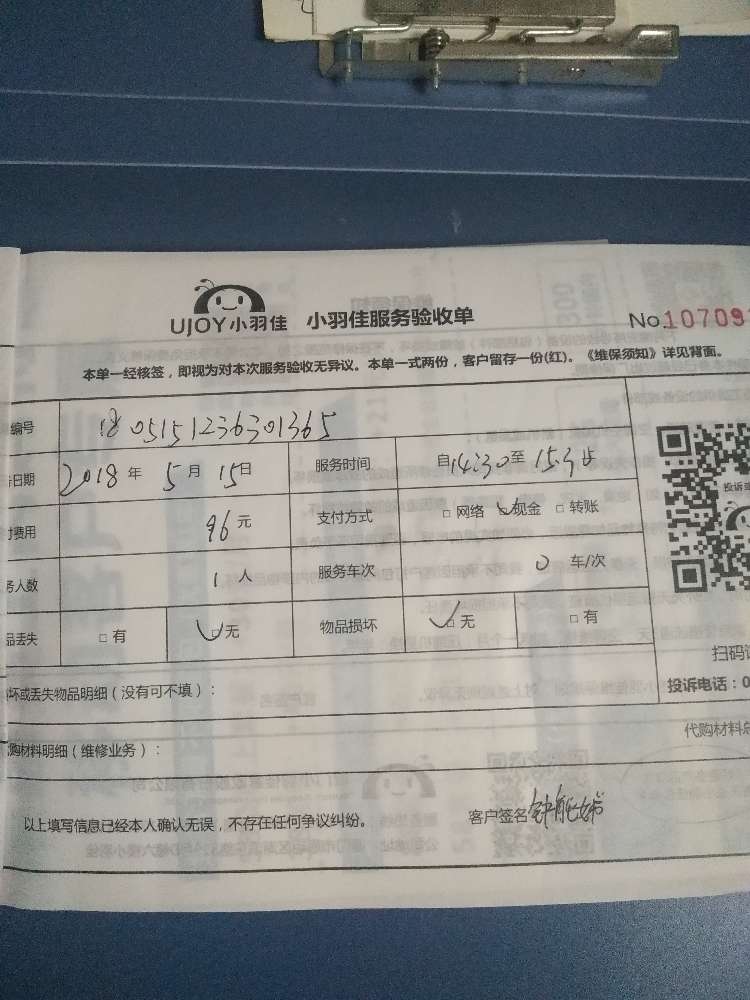 UJOY小羽佳 小羽佳服务验收单 No.10709
本单一经核签，即视为对本次服务验收无异议。本单一式两份，客户留存一份(红)。《维保须知》详见背面。
编号 18 05151236301365
日期 2018 年 5 月 15 日 服务时间 自14:30至15:30止
费用 96 元 支付方式 □ 网络 ☑现金 □ 转账
务人数 1 人 服务车次 0 车/次
品丢失 □ 有 ☑无 物品损坏 ☑无 □ 有
投诉
扫码
坏或丢失物品明细（没有可不填）： 投诉电话：0
购材料明细（维修业务）： 代购材料
以上填写信息已经本人确认无误，不存在任何争议纠纷。 客户签名